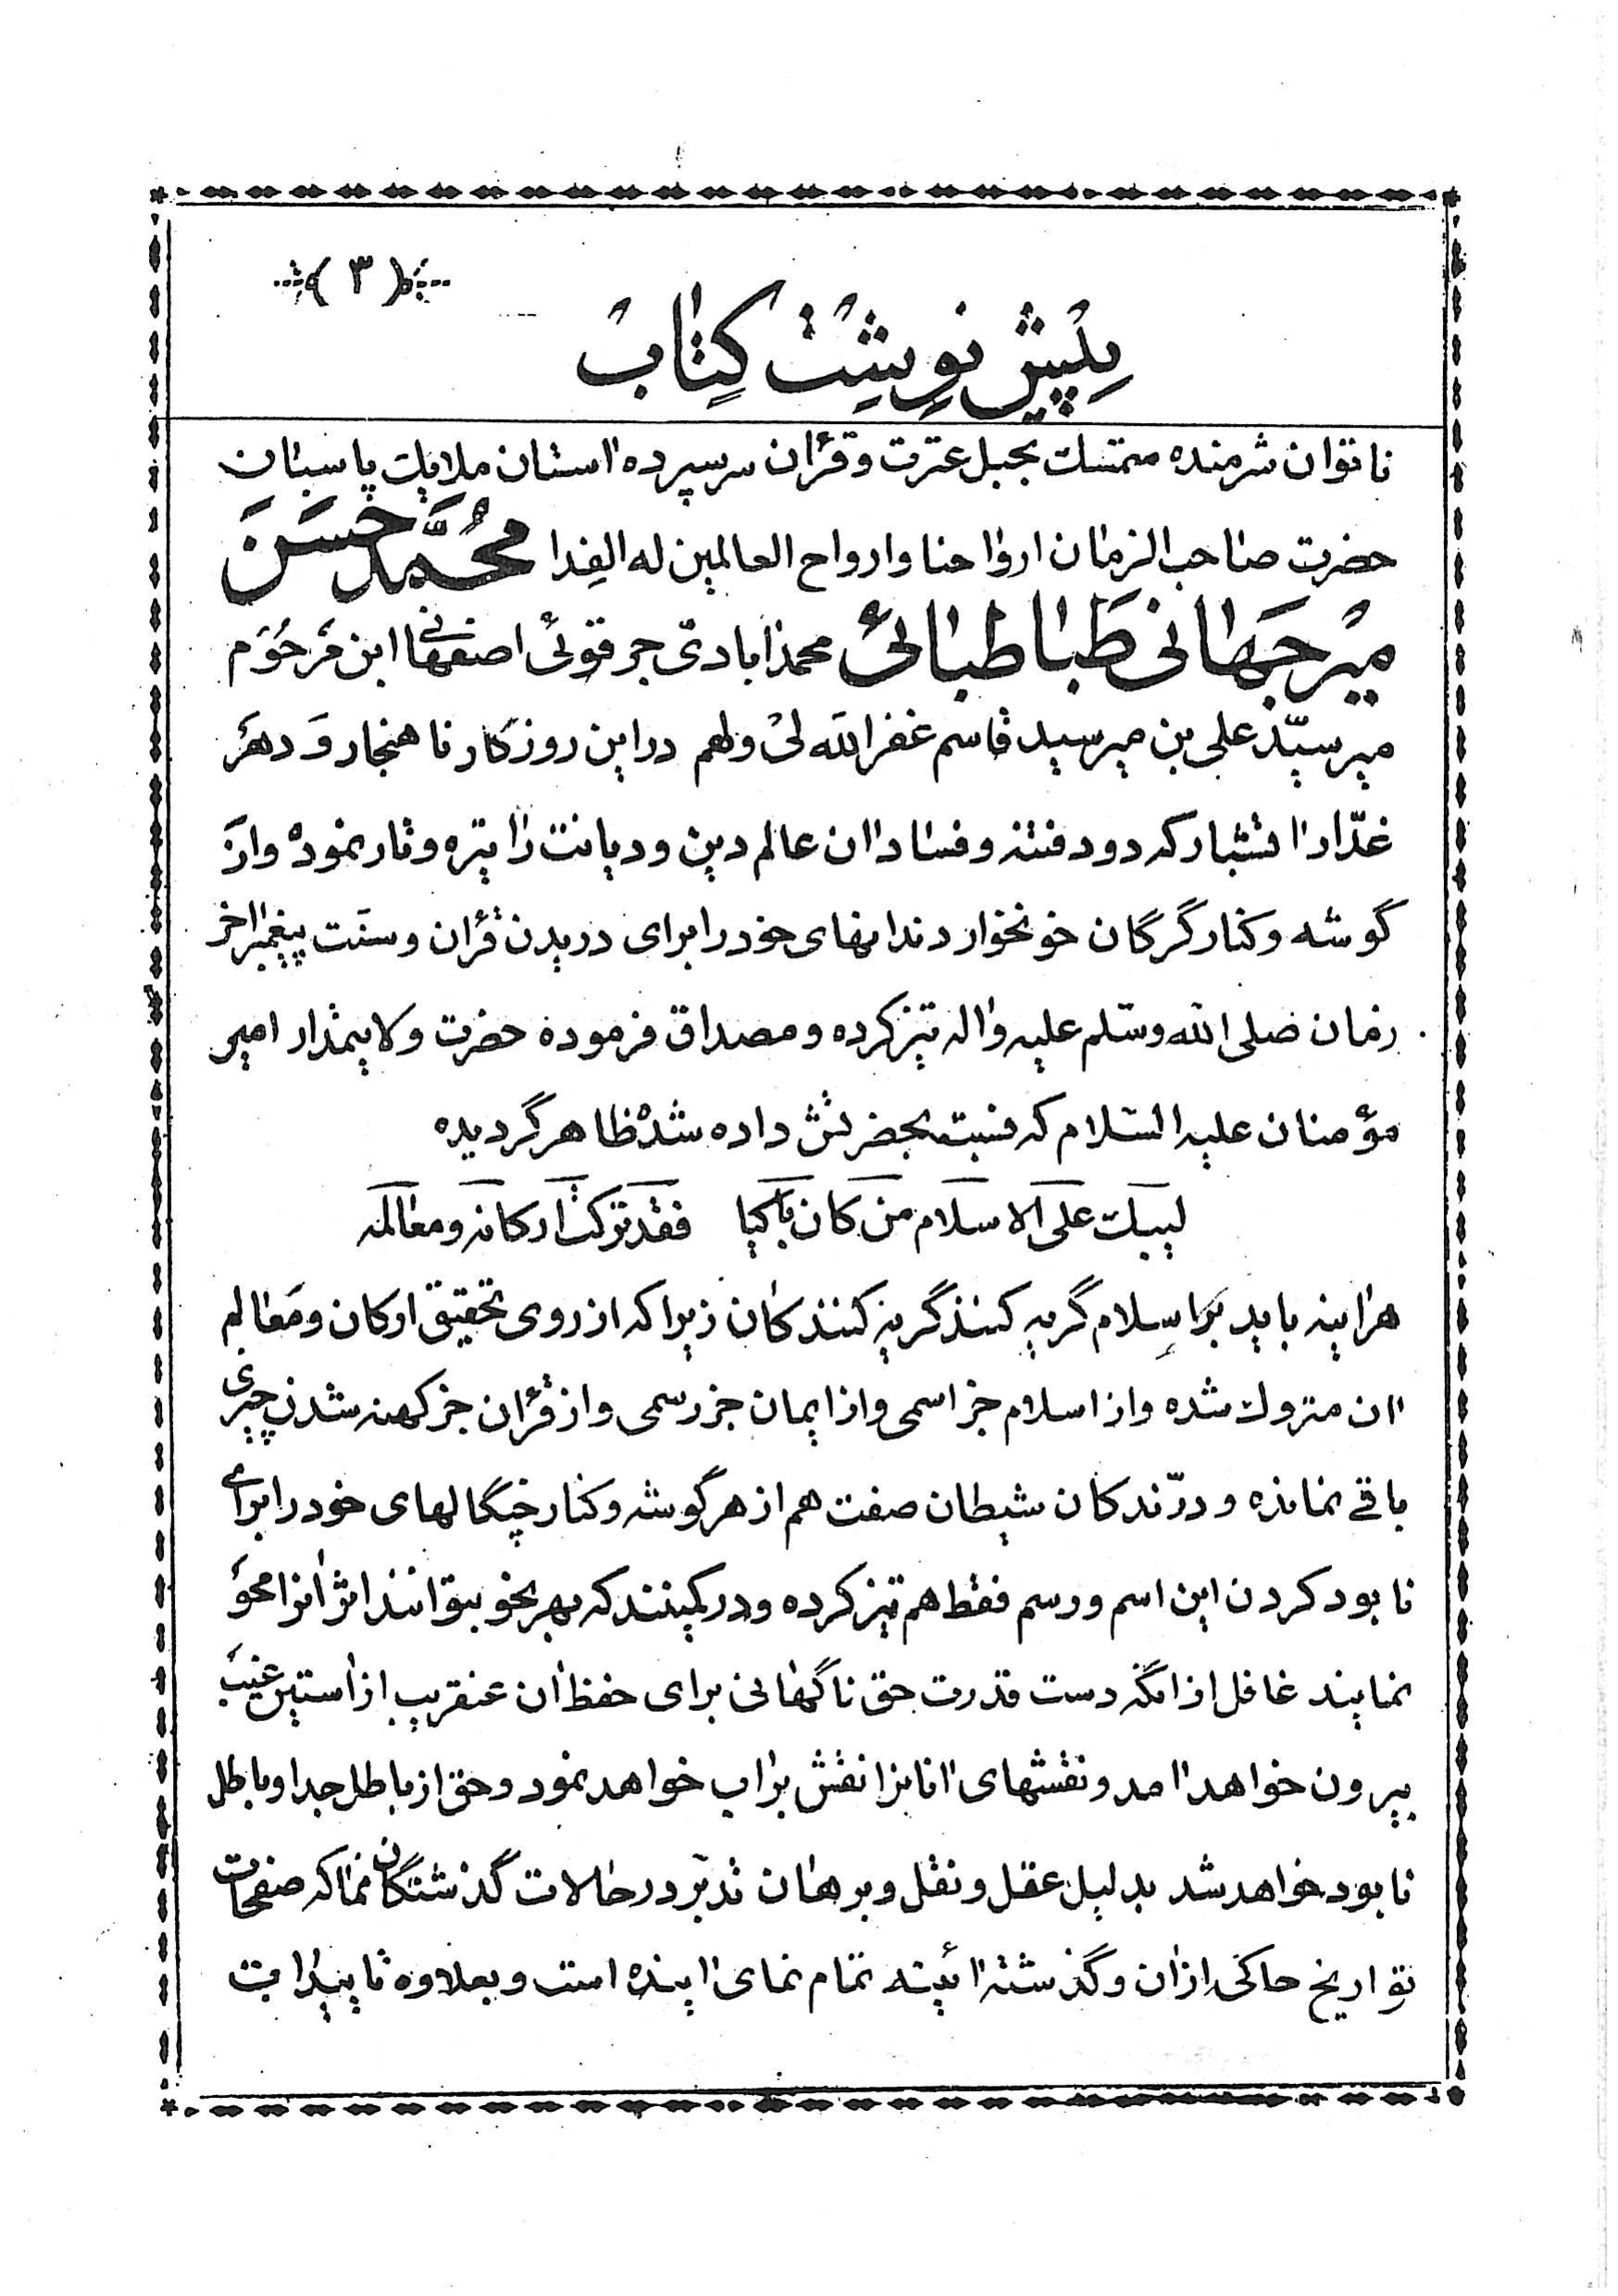 (۳)
پیش نوشت کتاب
ناتوان شرمنده متمسک بحبل عترت و قرآن سرسپرده آستان ملایک پاسبان
حضرت صاحب الزمان ارواحنا و ارواح العالمین له الفدا محمّد حسن
میرجهانی طباطبائی محمدآبادی جرقوئی اصفهانی ابن مرحوم
میر سیّد علی بن میر سید قاسم غفر الله لی ولهم در این روزکار ناهنجار و دهر
غدّار آتشبار که دود فتنه و فساد آن عالم دین و دیانت را تیره و تار نموده و از
گوشه و کنار گرگان خونخوار دندانهای خود را برای دریدن قرآن و سنّت پیغمبر آخر
زمان صلی الله وسلم علیه وآله تیز کرده و مصداق فرموده حضرت ولایتمدار امیر
مؤمنان علیه السّلام که نسبت بحضرتش داده شده ظاهر گردیده
لیبک علی الاسلام من کان باکیا فقد ترکت ارکانه ومعالمه
هرآینه باید بر اسلام گریه کنند گریه کنندکان زیرا که از روی تحقیق ارکان و معالم
آن متروک شده و از اسلام جز اسمی و از ایمان جز رسمی و از قرآن جز کهنه شدن چیزی
باقی نمانده و درّندکان شیطان صفت هم از هر گوشه و کنار چنگالهای خود را برای
نابود کردن این اسم و رسم فقط هم تیز کرده و در کمینند که بهر نحو بتوانند اثر آنرا محو
نمایند غافل از انکه دست قدرت حق ناگهانی برای حفظ آن عنقریب از آستین غیب
بیرون خواهد آمد و نقشهای آنانرا نقش بر آب خواهد نمود و حق از باطل جدا و باطل
نابود خواهد شد بدلیل عقل و نقل و برهان تدبّر در حالات گذشتگان که صفحات
تواریخ حاکی از آن و گذشته آئینه تمام نمای آینده است و بعلاوه تاییدات